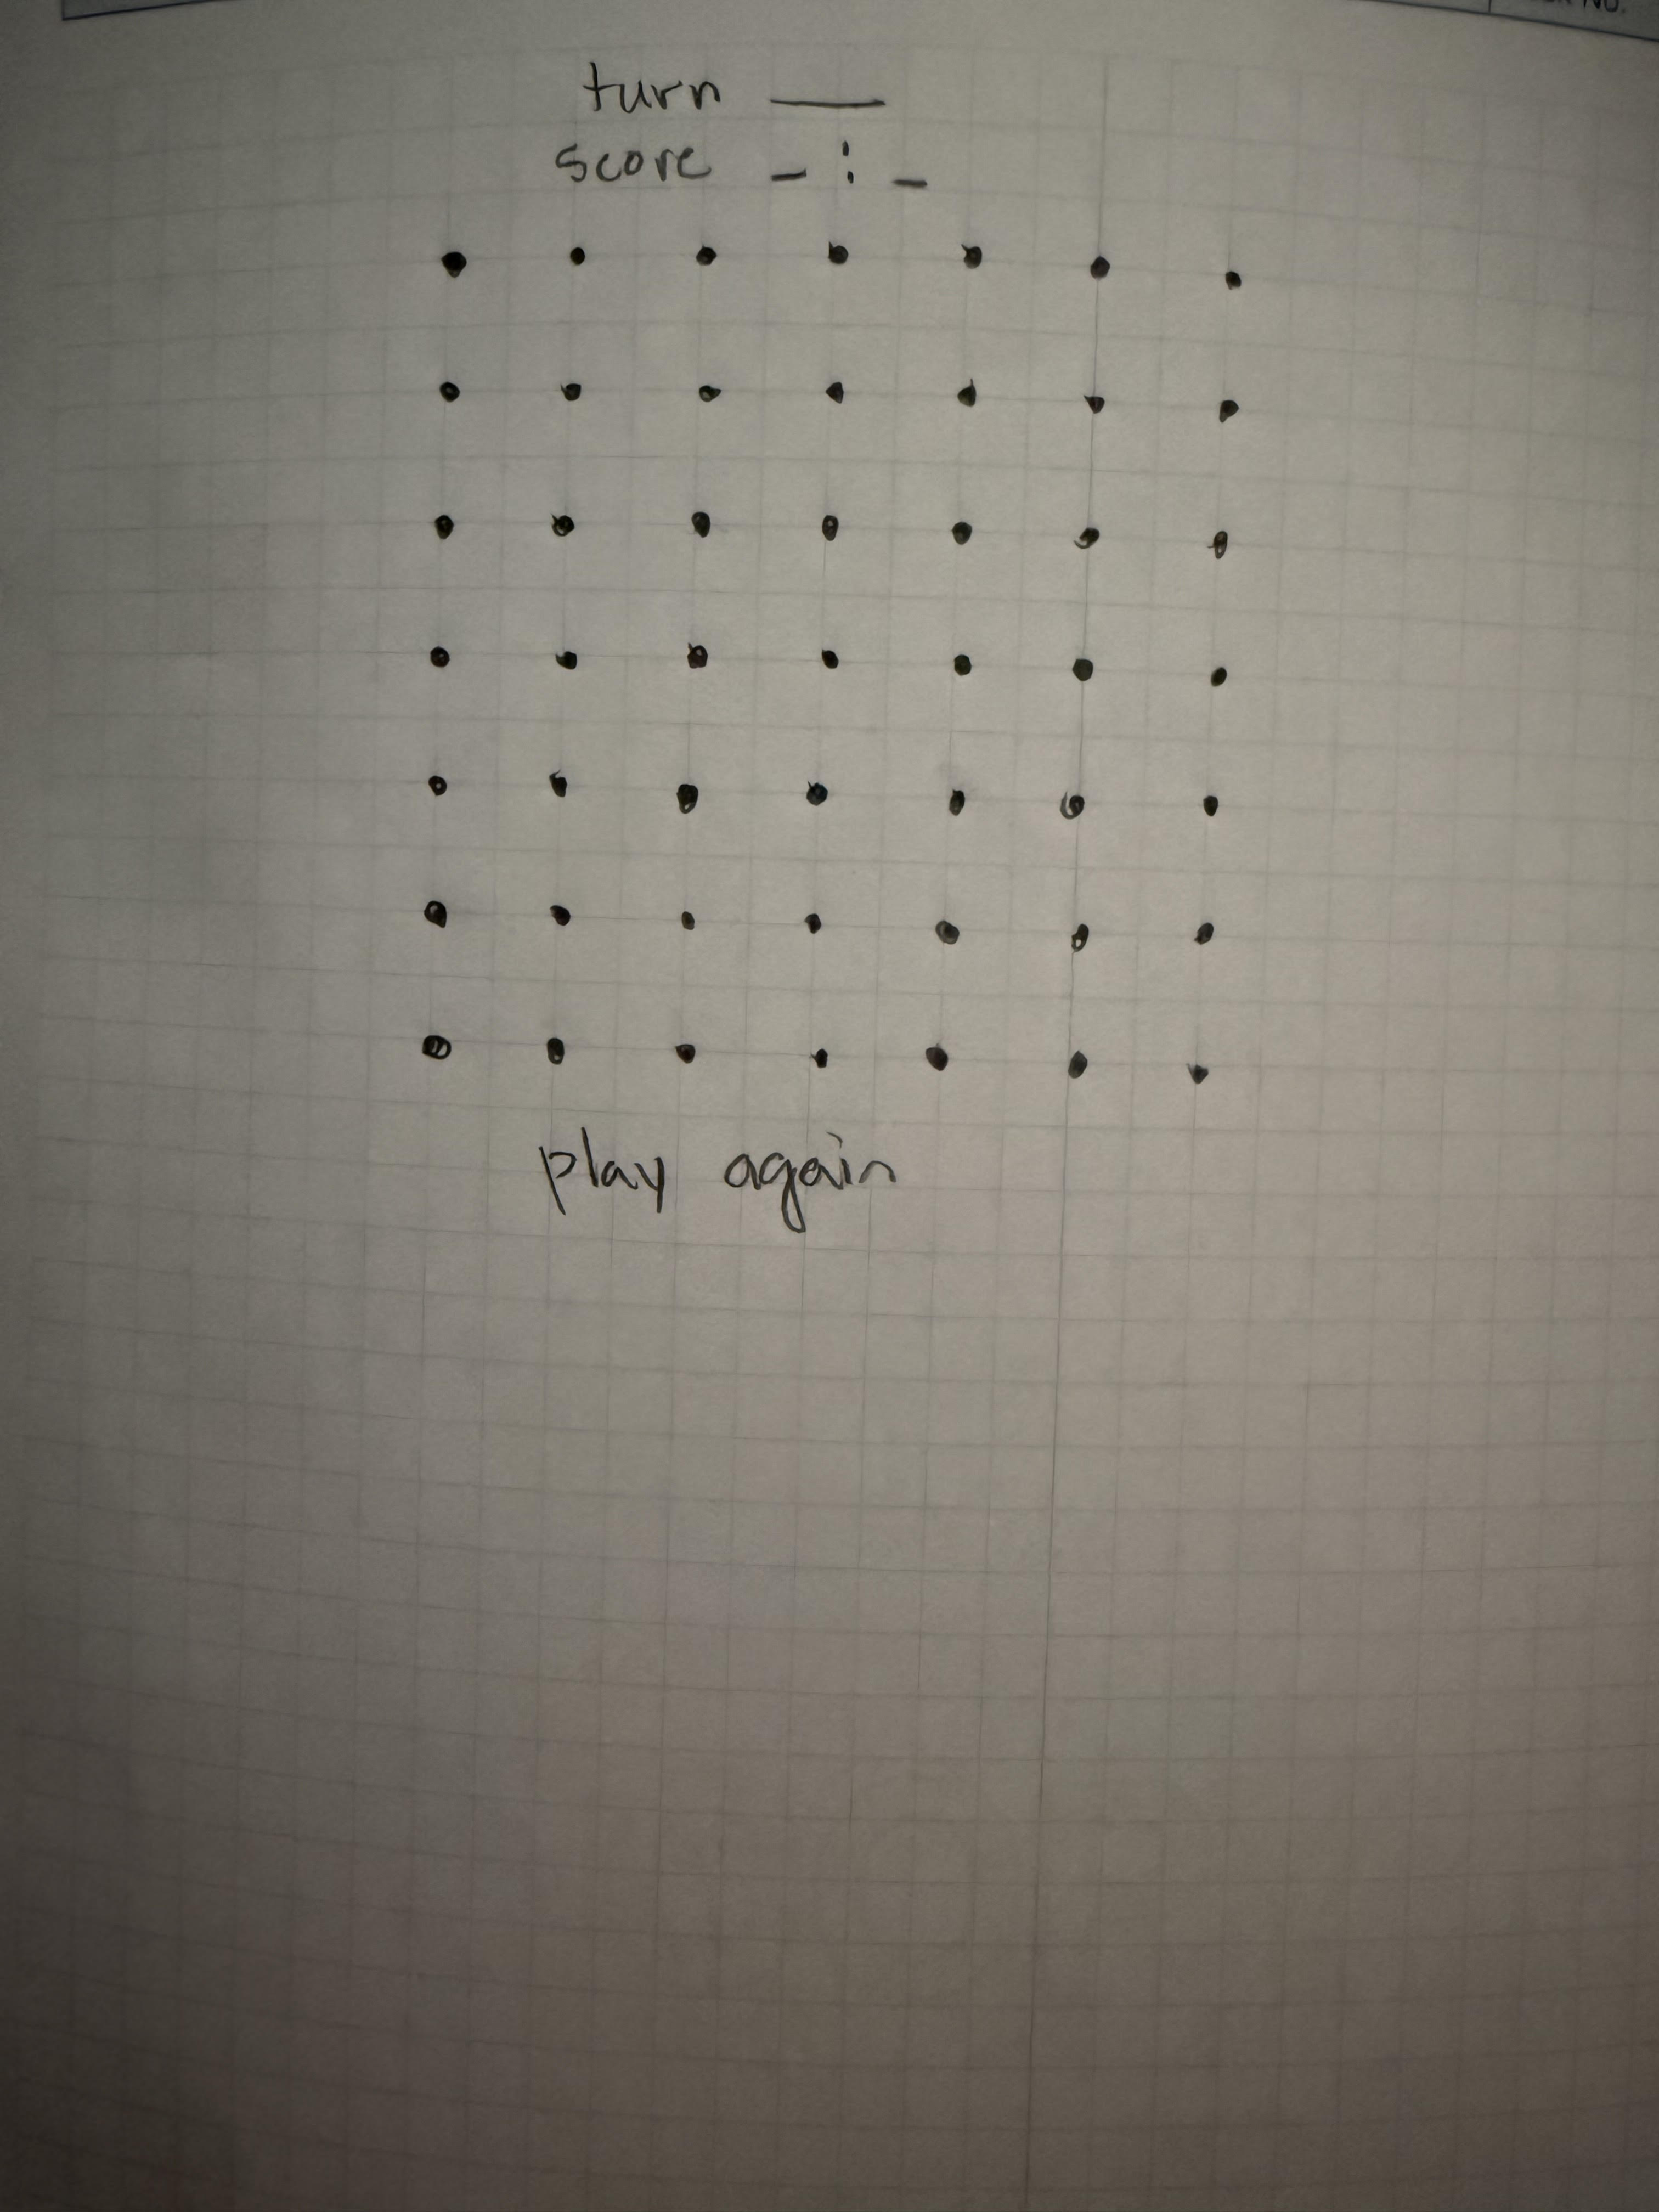 NO.
turn ___
score _ : _
play again